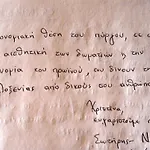 ονομιακή θέση του πύργου, σε σ
αισθητική των δωματίων ή την
νομία του πρωινού, αν δίνουν την
λοξενίας από δικούς σου ανθρώπο
Χριστίνα,
ευχαριστούμε σ
Σωτήρης - Ν